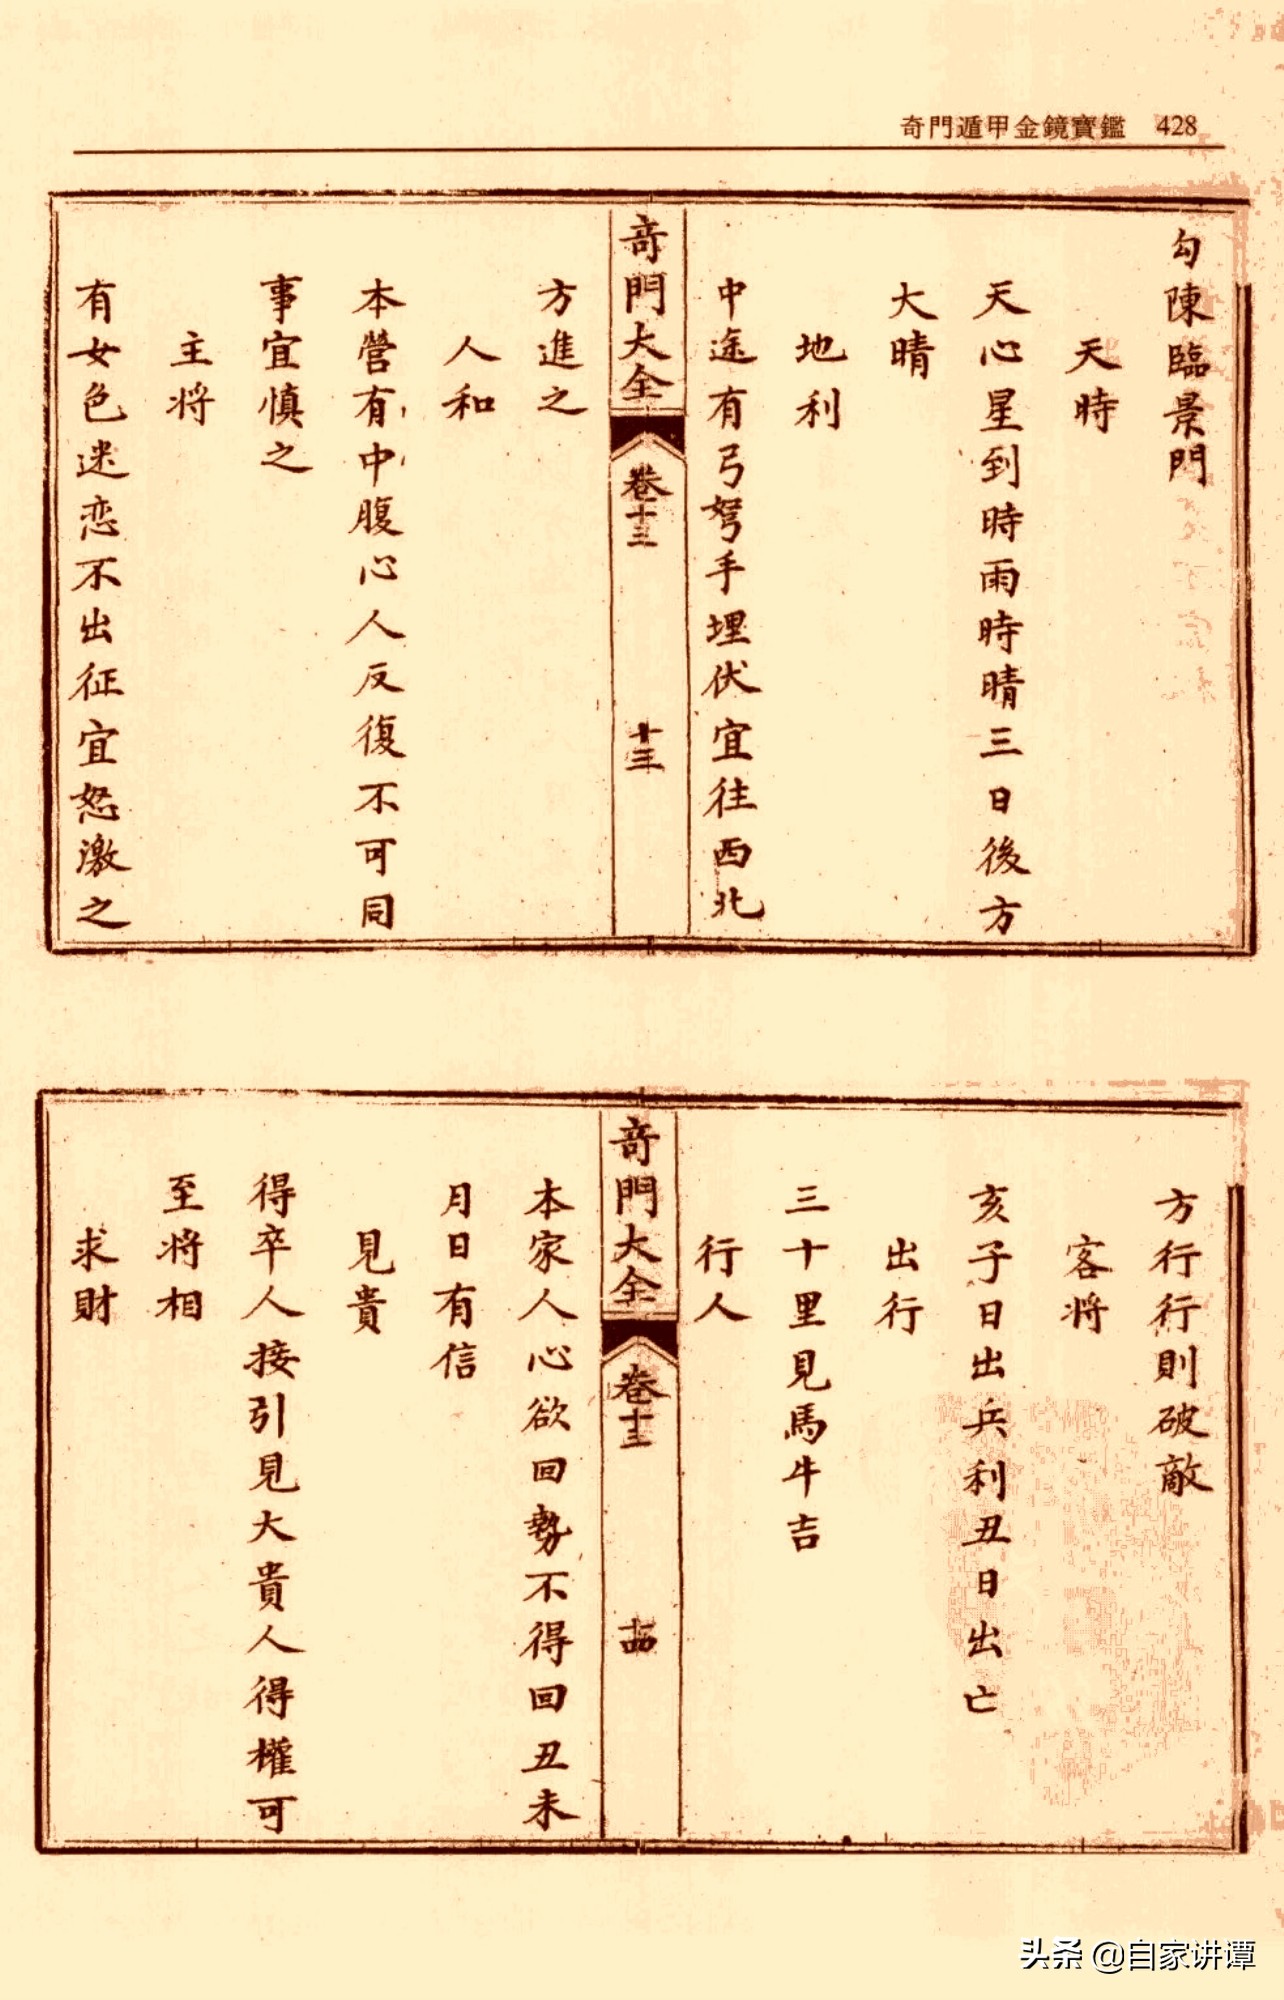 奇門遁甲金鏡寶鑑 428
勾陳臨景門
天時
天心星到時雨時晴三日後方
大晴
地利
中途有弓弩手埋伏宜往西北
奇門大全 卷十三 十三
方進之
人和
本營有中腹心人反復不可同
事宜慎之
主将
有女色迷恋不出征宜怒激之
方行行則破敵
客将
亥子日出兵利丑日出亡
出行
三十里見馬牛吉
行人
奇門大全 卷十三 十四
本家人心欲回勢不得回丑未
月日有信
見貴
得卒人接引見大貴人得權可
至将相
求財
头条 @自家讲谭